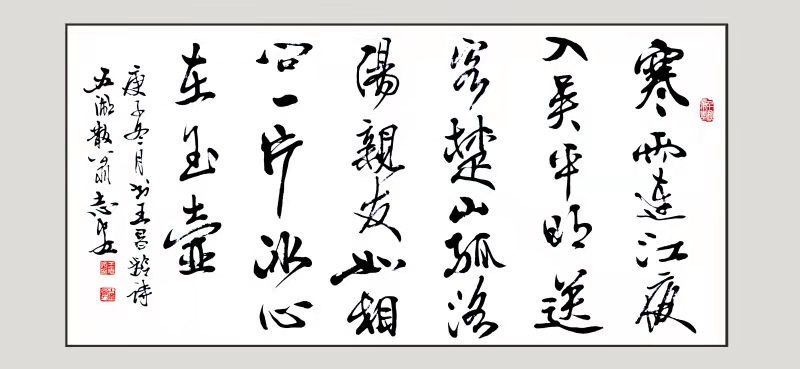 寒雨連江夜
入吴平明送
客楚山孤洛
陽親友如相
问一片冰心
在玉壶
庚子冬月书王昌龄诗
五湖散翁志